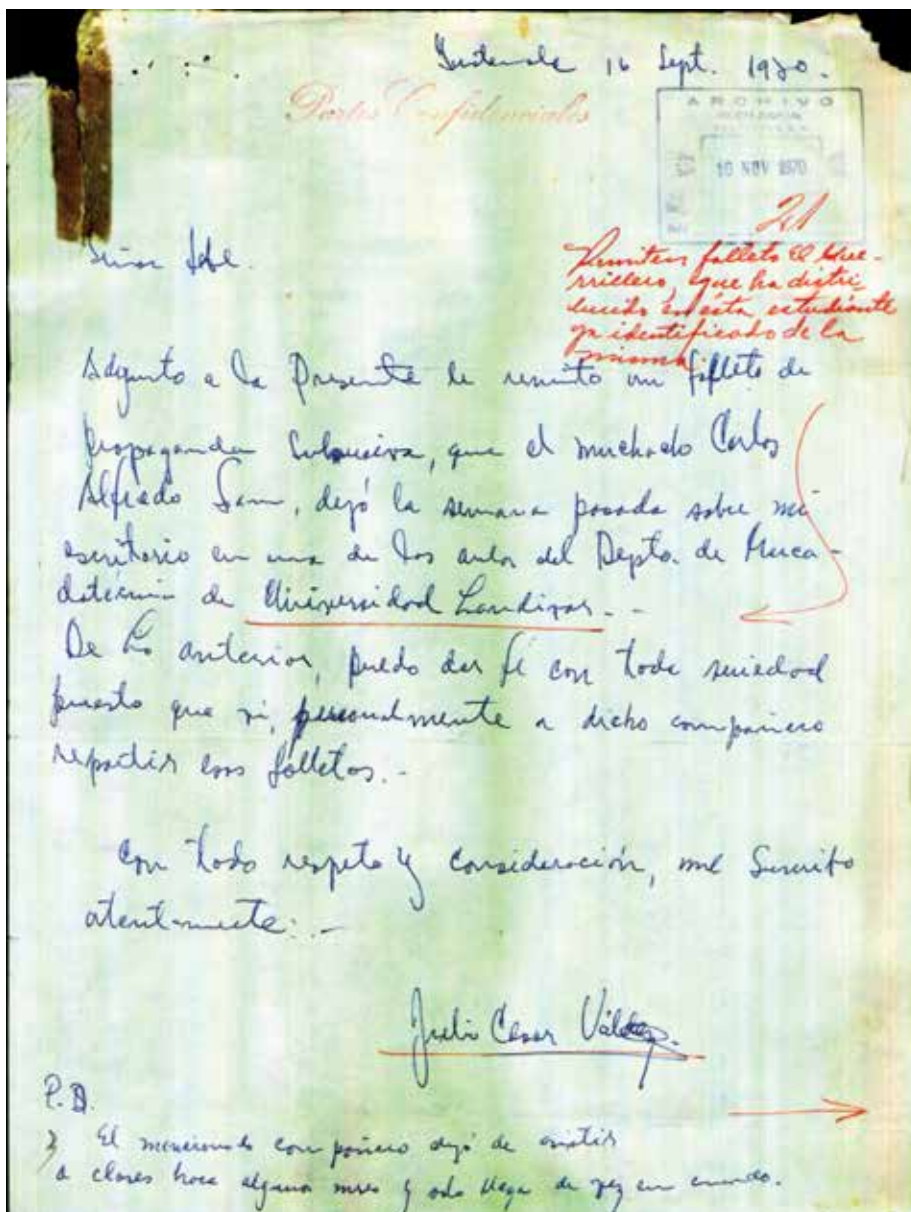 Guatemala 16 Sept. 1970.
Partes Confidenciales
ARCHIVO
10 NOV 1970
21
Señor Jefe.
Remiten folleto El Gue-
rrillero, que ha distri-
buido en ésta, estudiante
ya identificado de la
misma
Adjunto a la Presente le remito un folleto de
propaganda Subversiva, que el muchacho Carlos
Alfredo, dejó la semana pasada sobre mi
escritorio en una de las aulas del Depto. de Merca-
dotecnia de Universidad Landivar.-
De lo anterior, puedo dar fé con toda seriedad
puesto que vi, personalmente a dicho compañero
repartir esos folletos.-
Con todo respeto y consideración, me Suscribo
atentamente:.-
Julio Cesar Váldez.
P.D.
El mencionado compañero dejó de asistir
a clases hace algunos meses y solo llega de vez en cuando.